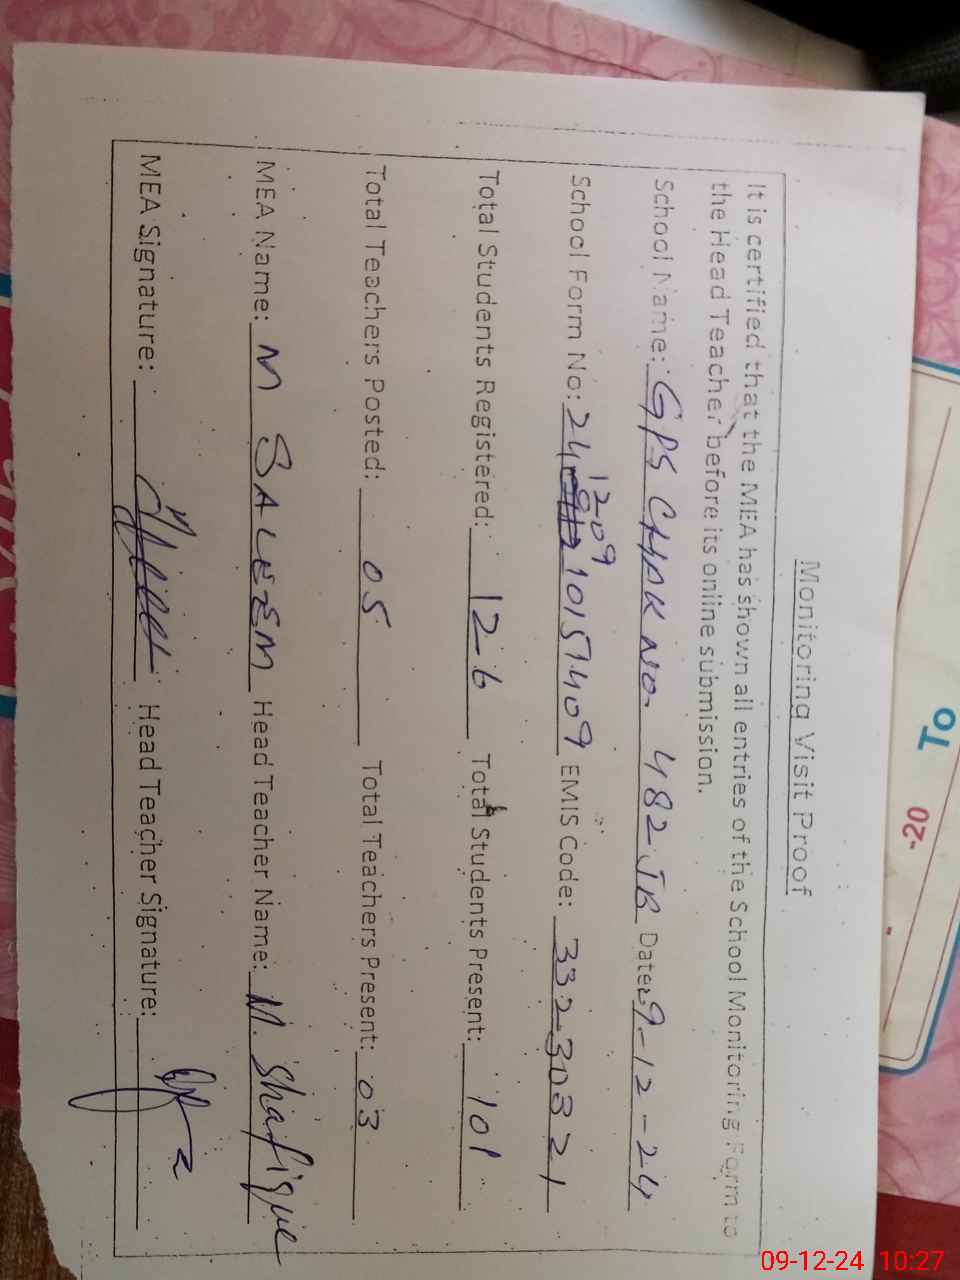 Monitoring Visit Proof
It is certified that the MEA has shown all entries of the School Monitoring Form to
the Head Teacher before its online submission.
School Name: GPS CHAK NO. 482 JB Date: 9-12-24
1209
School Form No: 24 10151409 EMIS Code: 33230321
Total Students Registered: 126 Total Students Present: 101
Total Teachers Posted: 05 Total Teachers Present: 03
MEA Name: M SALEEM Head Teacher Name: M. Shafique
MEA Signature: Head Teacher Signature:
To
-20
-
09-12-24 10:27